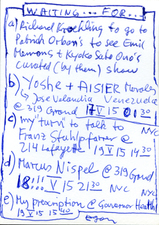 WAITING... FOR...
a) Richard Kroehling to go to
Patrick Orban's to see Emil
Memons + Kyoko Sato Ono's
curated (by them) show
b) Yoshe + AISIER Morales
Jose Velandia Venezuela
@ 319 Grand 17 V 15 01 30
c) my "turn" to talk to NYC
Franz Stuhlpfarrer @
214 Lafayett 19 V 15 14 30
d) Marcus Nispel @ 319 Grnd
18!!! V 15 21 30 NYC
e) My prescription @ Governor Health
19 V 15 15 40